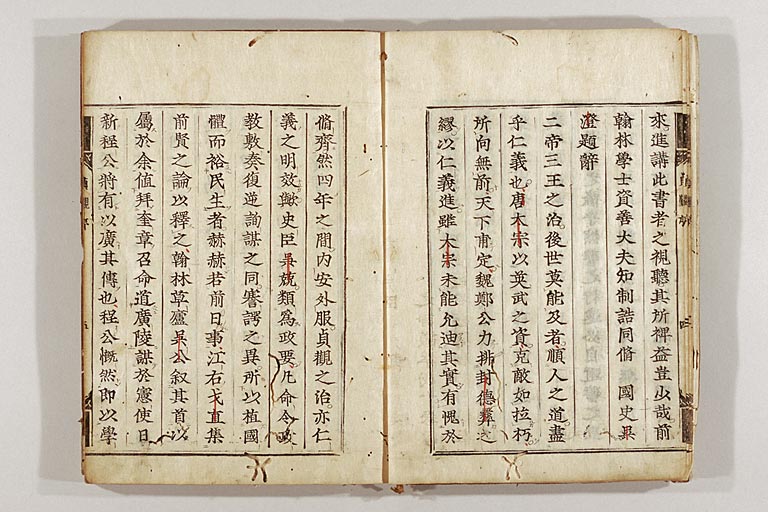 來進講此書者之視聽其所裨益豈少哉前
翰林學士資善大夫知制誥同脩　國史吳
澄題辭
二帝三王之治後世莫能及者順人之道盡
乎仁義也唐太宗以英武之資克敵如拉朽
所向無前天下甫定魏鄭公力排封德彝之
繆以仁義進雖太宗未能允迪其實有愧於
脩齊然四年之間內安外服貞觀之治亦仁
義之明效歟史臣吳兢類為政要凡命令政
教敷奏復逆詢謀之同謇諤之異所以植國
體而裕民生者赫赫若前日事江右戈直集
前賢之論以釋之翰林草廬吳公叙其首以
屬於余值拜奎章召命道廣陵謀於憲使日
新程公將有以廣其傳也程公慨然即以學